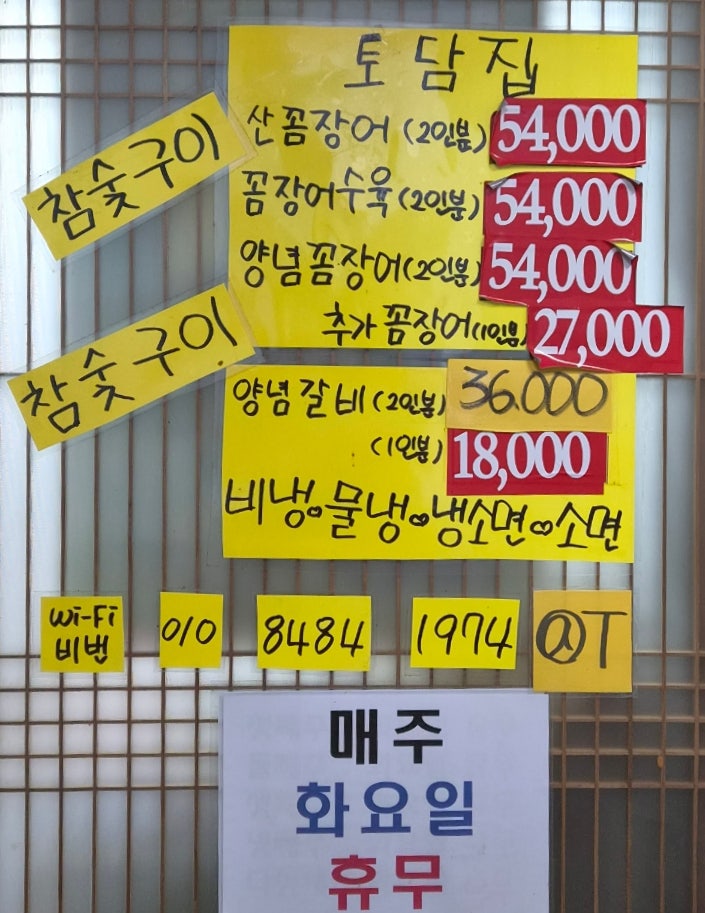 토담집
참숯구이
산꼼장어(2인분) 54,000
꼼장어수육(2인분) 54,000
양념꼼장어(2인분) 54,000
추가꼼장어(1인분) 27,000
참숯구이
양념갈비(2인분) 36.000
(1인분) 18,000
비냉 물냉 냉소면 소면
Wi-Fi
비번
010 8484 1974 @T
매주
화요일
휴무